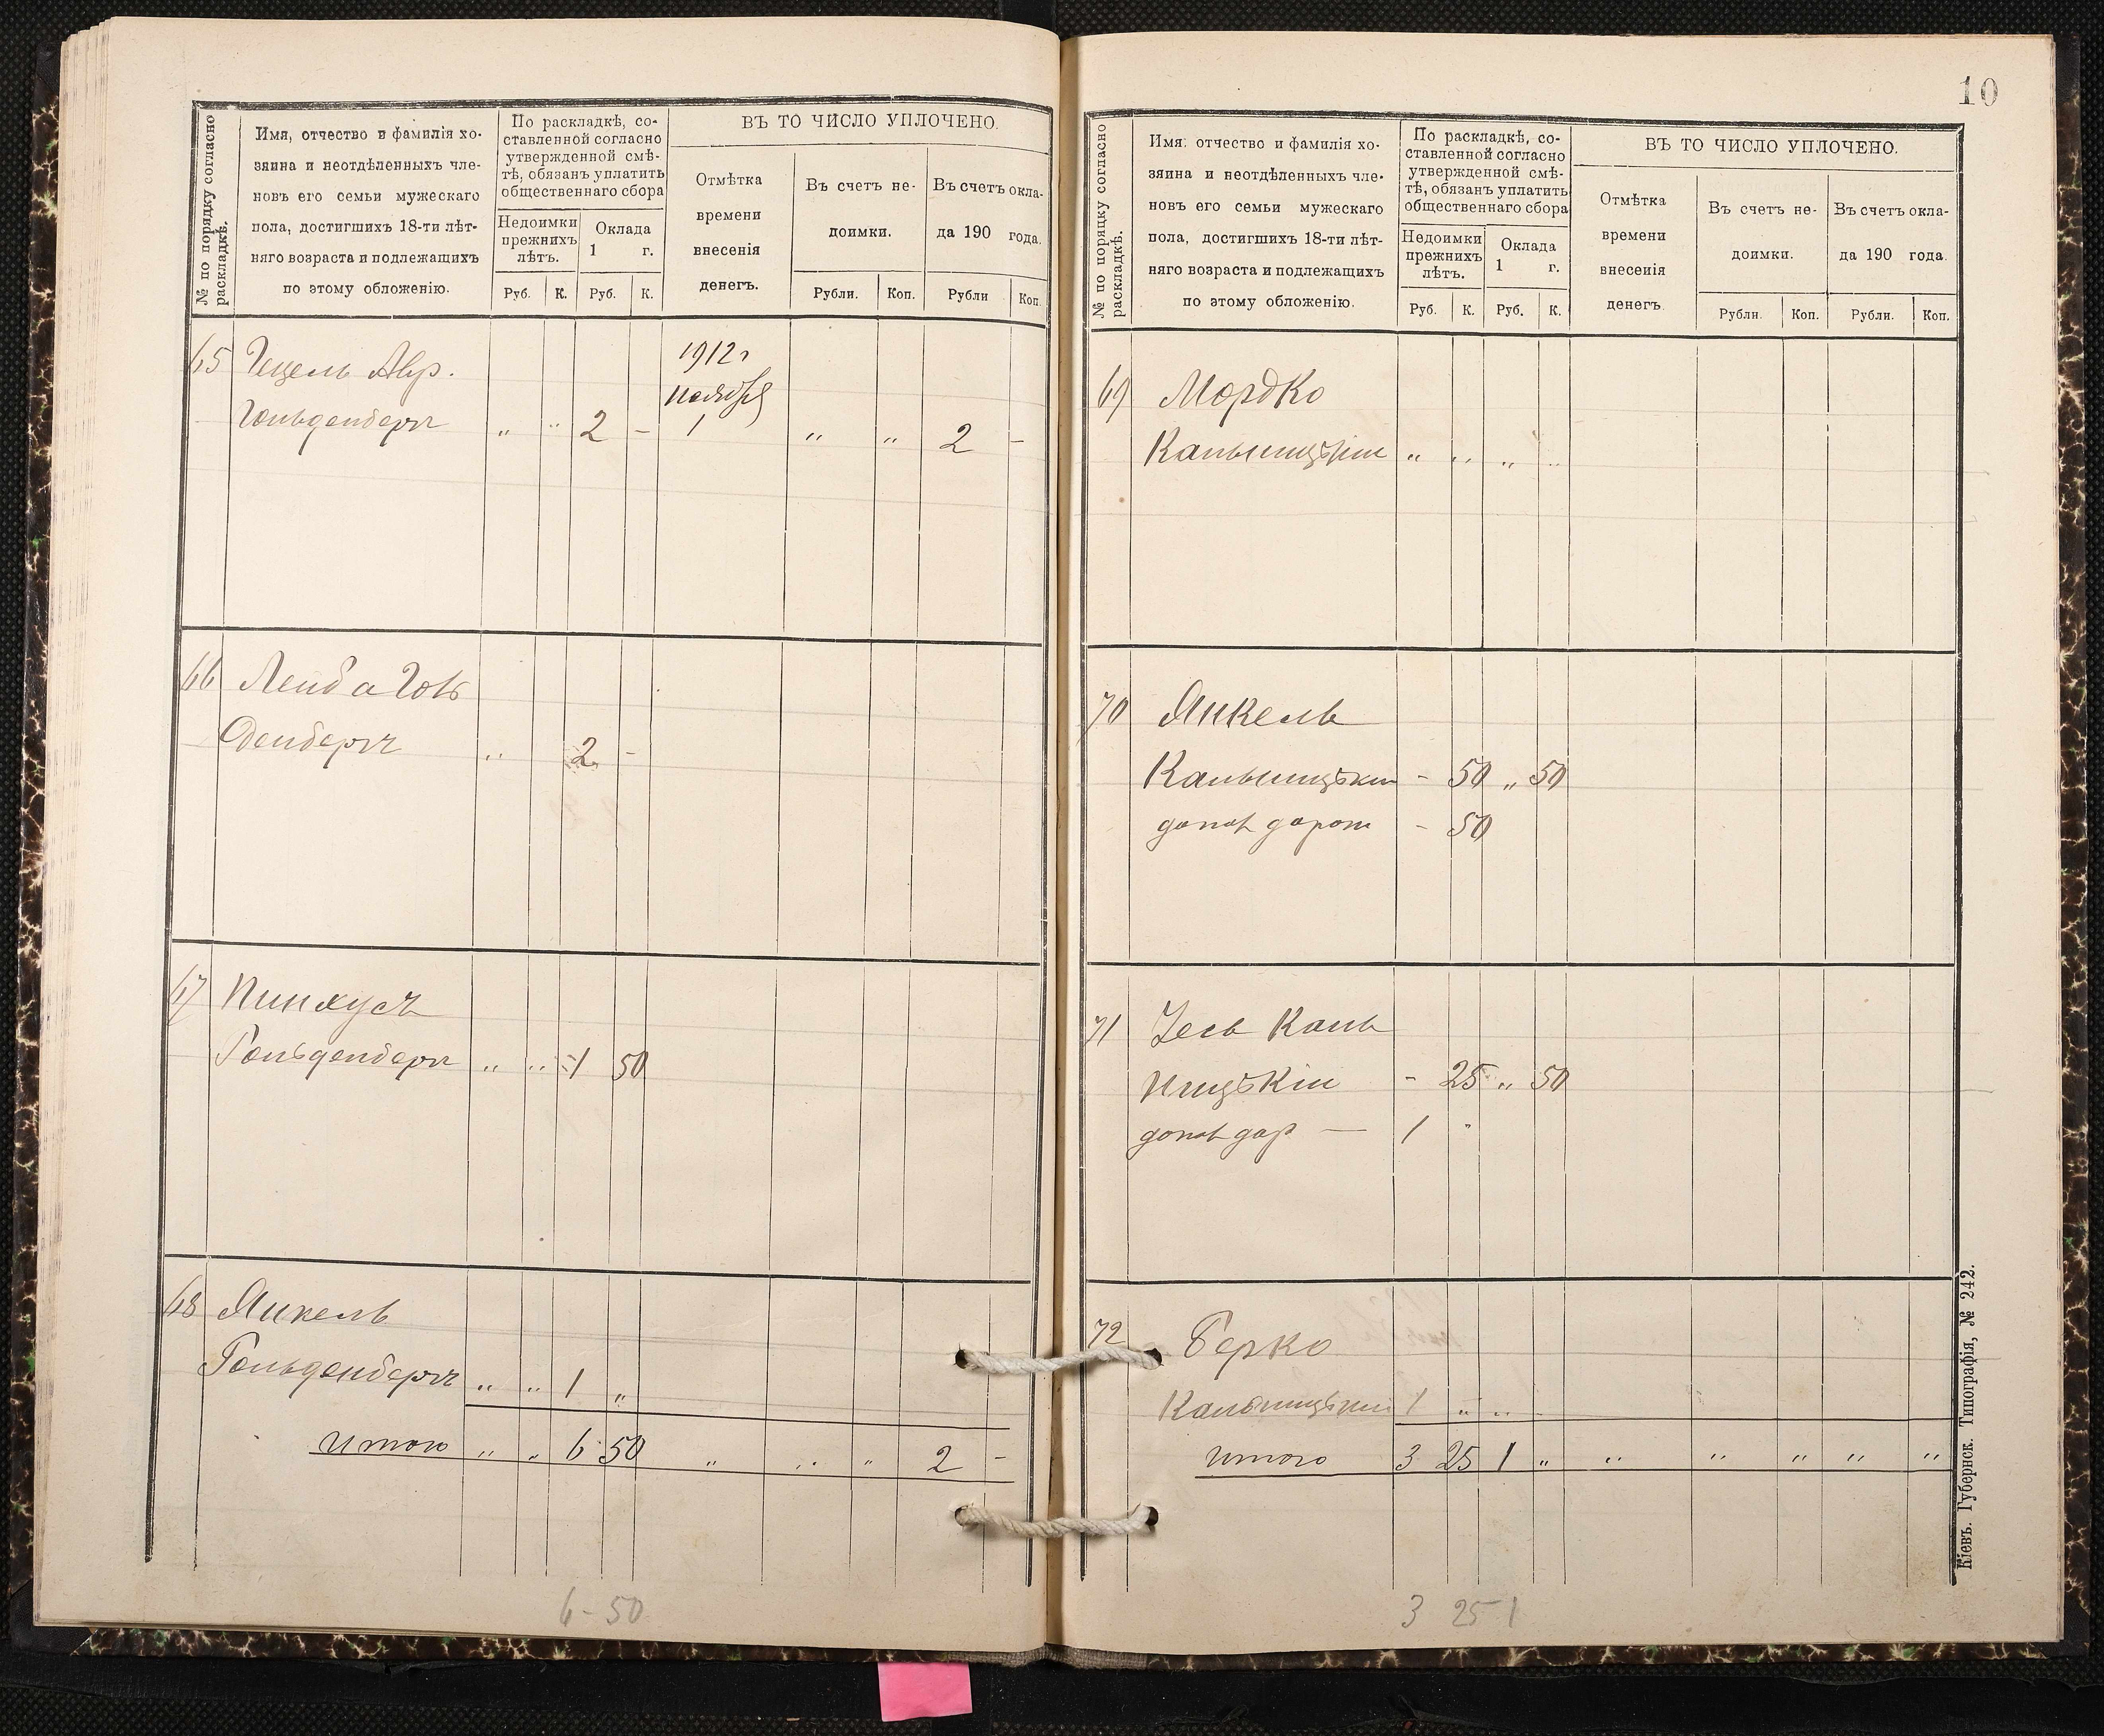 № по порядку согласно
раскладкѣ.
Имя, отчество и фамилія хо-
зяина и неотдѣленныхъ чле-
новъ его семьи мужескаго
пола, достигшихъ 18-ти лѣт-
няго возраста и подлежащихъ
по этому обложенію.
По раскладкѣ, со-
ставленной согласно
утвержденной смѣ-
тѣ, обязанъ уплатить
общественнаго сбора
Недоимки
прежнихъ
лѣтъ.
Оклада
1 г.
Руб. К. Руб. К.
ВЪ ТО ЧИСЛО УПЛОЧЕНО.
Отмѣтка
времени
внесенія
денегъ.
Въ счетъ не-
доимки.
Рубли. Коп.
Въ счетъ окла-
да 190 года.
Рубли Коп.
65 Гецель Авр. 1912 г
ноября
Гольденберг „ „ 2 - 1 „ „ 2 -
66 Лейба Голь
денберг „ 2 -
67 Пинхусъ
Гольденберг „ „ 1 50
68 Янкель
Гольденберг „ „ 1 „
Итого „ „ 6 50 „ „ „ 2 -
6 - 50
10
№ по порядку согласно
раскладкѣ.
Имя. отчество и фамилія хо-
зяина и неотдѣленныхъ чле-
новъ его семьи мужескаго
пола, достигшихъ 18-ти лѣт-
няго возраста и подлежащихъ
по этому обложенію.
По раскладкѣ, со-
ставленной согласно
утвержденной смѣ-
тѣ, обязанъ уплатить
общественнаго сбора
Недоимки
прежнихъ
лѣтъ.
Оклада
1 г.
Руб. К. Руб. К.
ВЪ ТО ЧИСЛО УПЛОЧЕНО.
Отмѣтка
времени
внесенія
денегъ.
Въ счетъ не-
доимки.
Рубли. Коп.
Въ счетъ окла-
да 190 года.
Рубли. Коп.
69 Мордко
Кальницькій „ „ „ „
70 Янкель
Кальницькій - 50 „ 50
- 50
71 Каль
ницькій - 25 „ 50
1 „
72 Берко
Кальницькій 1 „ „ -
Итого 3 25 1 „ „ „ „ „ „
3 25 1
Кіевъ. Губернск. Типографія, № 242.